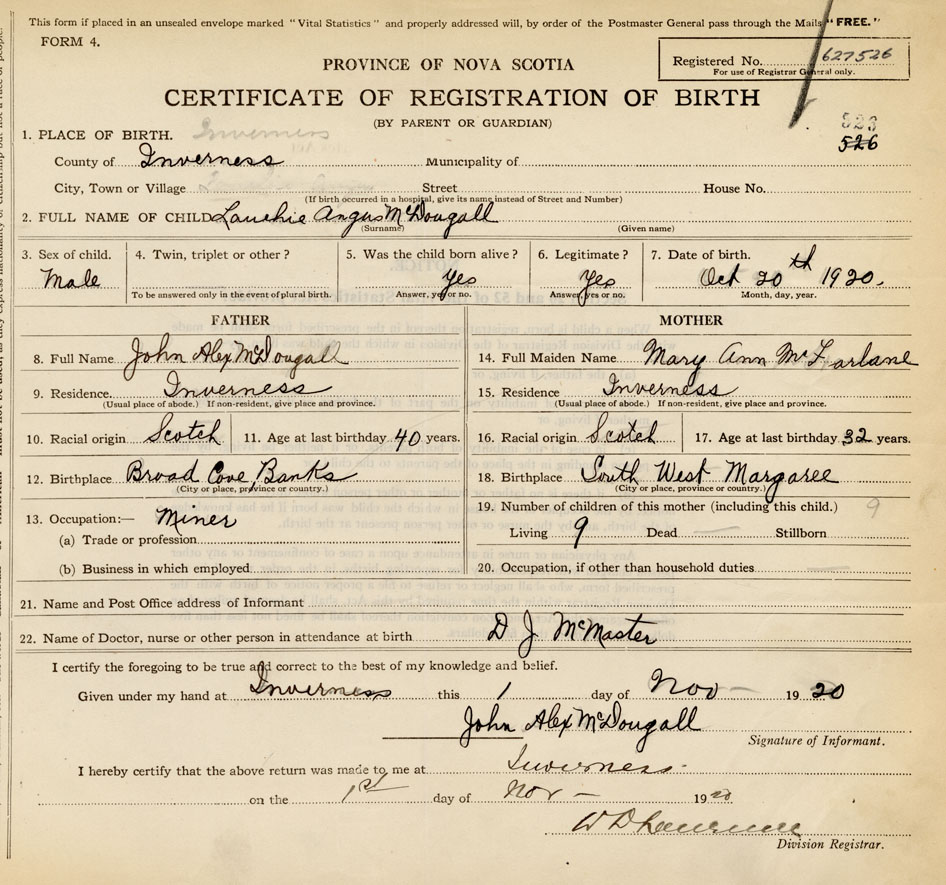 This form if placed in an unsealed envelope marked "Vital Statistics" and properly addressed will, by order of the Postmaster General pass through the Mails "FREE."
FORM 4.
Registered No. 627526
For use of Registrar General only.
PROVINCE OF NOVA SCOTIA
CERTIFICATE OF REGISTRATION OF BIRTH
(BY PARENT OR GUARDIAN)
523
526
1. PLACE OF BIRTH. Inverness
County of Inverness Municipality of
City, Town or Village Street House No.
(If birth occurred in a hospital, give its name instead of Street and Number)
2. FULL NAME OF CHILD Lauchie Angus McDougall
(Surname) (Given name)
3. Sex of child. 4. Twin, triplet or other? 5. Was the child born alive? 6. Legitimate? 7. Date of birth.
Male Yes Yes Oct 20th 1920.
To be answered only in the event of plural birth. Answer, yes or no. Answer, yes or no. Month, day, year.
FATHER MOTHER
8. Full Name John Alex McDougall 14. Full Maiden Name Mary Ann McFarlane
9. Residence. Inverness 15. Residence Inverness
(Usual place of abode.) If non-resident, give place and province. (Usual place of abode.) If non-resident, give place and province.
10. Racial origin Scotch 11. Age at last birthday 40 years. 16. Racial origin Scotch 17. Age at last birthday 32 years.
12. Birthplace Broad Cove Banks 18. Birthplace South West Margaree
(City or place, province or country.) (City or place, province or country.)
13. Occupation:— Miner 19. Number of children of this mother (including this child.) 9
(a) Trade or profession Living 9 Dead — Stillborn
(b) Business in which employed 20. Occupation, if other than household duties —
21. Name and Post Office address of Informant
22. Name of Doctor, nurse or other person in attendance at birth D J McMaster
I certify the foregoing to be true and correct to the best of my knowledge and belief.
Given under my hand at Inverness this 1 day of Nov — 19 20
John Alex McDougall
Signature of Informant.
I hereby certify that the above return was made to me at Inverness.
on the 1st day of Nov — 19 20
W D Lawrence
Division Registrar.